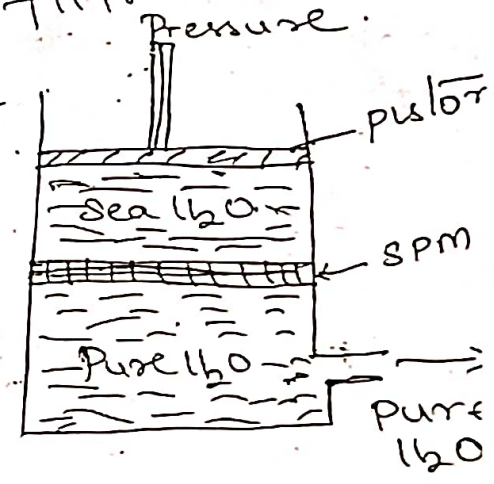 Pressure.
piston
Sea H2O
SPM
Pure H2O
pure
H2O